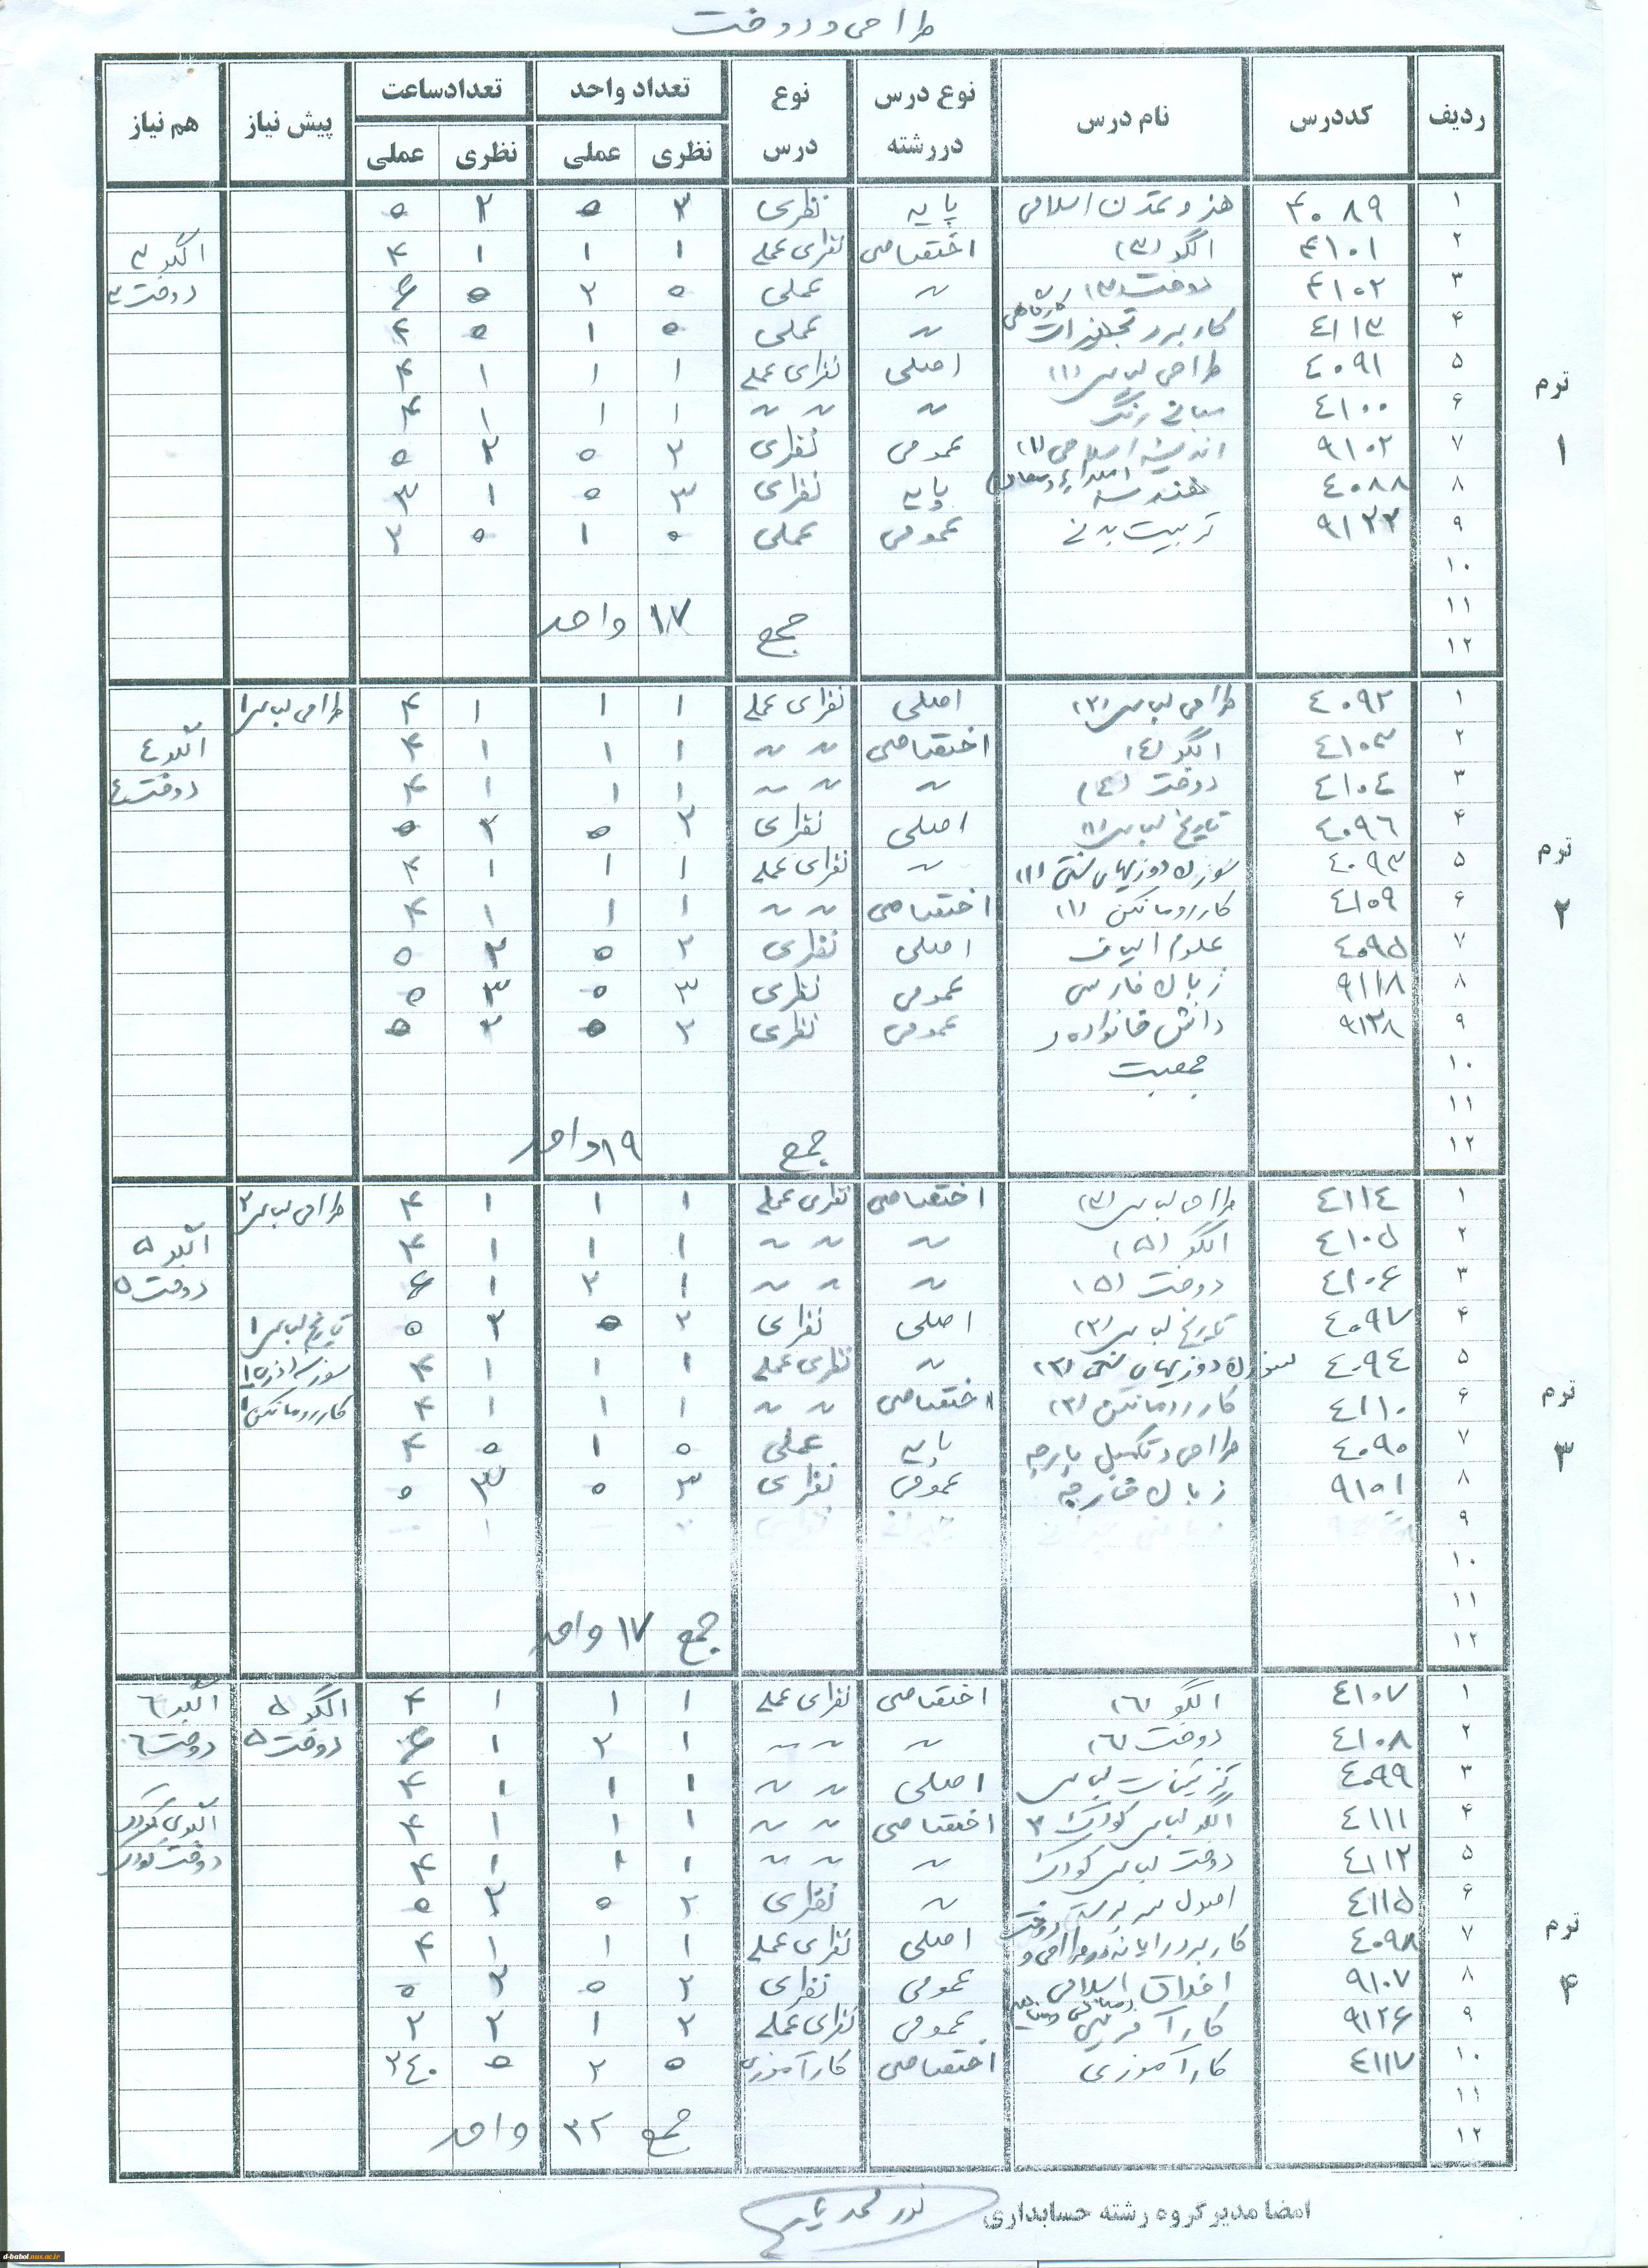 طراحی و دوخت
ردیف کددرس نام درس نوع درس دررشته نوع درس تعداد واحد تعدادساعت پیش نیاز هم نیاز
نظری عملی نظری عملی
ترم ۱
۱ ۴۰۸۹ هنر و تمدن اسلامی پایه نظری ۲ ۰ ۲ ۰
۲ ۴۱۰۱ الگو (۳) اختصاصی نظری عملی ۱ ۱ ۱ ۴ الگو ۳
۳ ۴۱۰۲ دوخت (۳) ~ عملی ۰ ۲ ۰ دوخت ۳
۴ ۴۱۱۳ کاربرد تجهیزات کارگاهی ~ عملی ۰ ۱ ۰ ۴
۵ ۴۰۹۱ طراحی لباس (۱) اصلی نظری عملی ۱ ۱ ۱ ۴
۶ ۴۱۰۰ مبانی رنگ ~ ~ ~ ۱ ۱ ۱ ۴
۷ ۹۱۰۲ اندیشه اسلامی (۱) عمومی نظری ۲ ۰ ۲ ۰
۸ ۴۰۸۸ هندسه پایه نظری ۳ ۰ ۱ ۳
۹ ۹۱۲۲ تربیت بدنی عمومی عملی ۰ ۱ ۰ ۲
۱۰
۱۱
۱۲ جمع ۱۷ واحد
ترم ۲
۱ ۴۰۹۲ طراحی لباس (۲) اصلی نظری عملی ۱ ۱ ۱ ۴ طراحی لباس ۱
۲ ۴۱۰۳ الگو (۴) اختصاصی ~ ~ ۱ ۱ ۱ ۴ الگو ۴
۳ ۴۱۰۴ دوخت (۴) ~ ~ ~ ۱ ۱ ۱ ۴ دوخت ۴
۴ ۴۰۹۶ تاریخ لباس (۱) اصلی نظری ۲ ۰ ۲ ۰
۵ ۴۰۹۳ سوزن دوزیهای سنتی (۱) ~ نظری عملی ۱ ۱ ۱ ۴
۶ ۴۱۰۹ کار رو مانکن (۱) اختصاصی ~ ~ ۱ ۱ ۱ ۴
۷ ۴۰۹۵ علوم الیاف اصلی نظری ۲ ۰ ۲ ۰
۸ ۹۱۱۸ زبان فارسی عمومی نظری ۳ ۰ ۳ ۰
۹ ۹۱۲۸ دانش خانواده و عمومی نظری ۲ ۰ ۲ ۰
۱۰ جمعیت
۱۱
۱۲ جمع ۱۹ واحد
ترم ۳
۱ ۴۱۱۴ طراحی لباس (۳) اختصاصی نظری عملی ۱ ۱ ۱ ۴ طراحی لباس ۲
۲ ۴۱۰۵ الگو (۵) ~ ~ ~ ۱ ۱ ۱ ۴ الگو ۵
۳ ۴۱۰۶ دوخت (۵) ~ ~ ~ ۱ ۲ ۱ دوخت ۵
۴ ۴۰۹۷ تاریخ لباس (۲) اصلی نظری ۲ ۰ ۲ ۰ تاریخ لباس ۱
۵ ۴۰۹۴ سوزن دوزیهای سنتی (۲) ~ نظری عملی ۱ ۱ ۱ ۴
۶ ۴۱۱۰ کار رو مانکن (۲) اختصاصی ~ ~ ۱ ۱ ۱ ۴ کار رو مانکن ۱
۷ ۴۰۹۰ طراحی و تکمیل پارچه پایه عملی ۰ ۱ ۰ ۴
۸ ۹۱۰۱ زبان خارجه عمومی نظری ۳ ۰ ۳ ۰
۹
۱۰
۱۱
۱۲ جمع ۱۷ واحد
ترم ۴
۱ ۴۱۰۷ الگو (۶) اختصاصی نظری عملی ۱ ۱ ۱ ۴ الگو ۵ الگو ۶
۲ ۴۱۰۸ دوخت (۶) ~ ~ ~ ۱ ۲ ۱ دوخت ۵ دوخت ۶
۳ ۴۰۹۹ تزئینات لباس اصلی ~ ~ ۱ ۱ ۱ ۴
۴ ۴۱۱۱ الگو لباس کودک اختصاصی ~ ~ ۱ ۱ ۱ ۴ الگوی کودک
۵ ۴۱۱۲ دوخت لباس کودک ~ ~ ~ ۱ ۱ ۱ ۴ دوخت کودک
۶ ۴۱۱۵ اصول سرپرستی ~ نظری ۲ ۰ ۲ ۰
۷ ۴۰۹۸ کاربرد رایانه در طراحی و دوخت اصلی نظری عملی ۱ ۱ ۱ ۴
۸ ۹۱۰۷ اخلاق اسلامی عمومی نظری ۲ ۰ ۲ ۰
۹ ۹۱۲۶ کارآفرینی عمومی نظری عملی ۲ ۱ ۲ ۲
۱۰ ۴۱۱۷ کارآموزی اختصاصی کارآموزی ۰ ۲ ۰ ۲۴۰
۱۱
۱۲ جمع ۲۲ واحد
امضا مدیر گروه رشته حسابداری
d-babol.nus.ac.ir